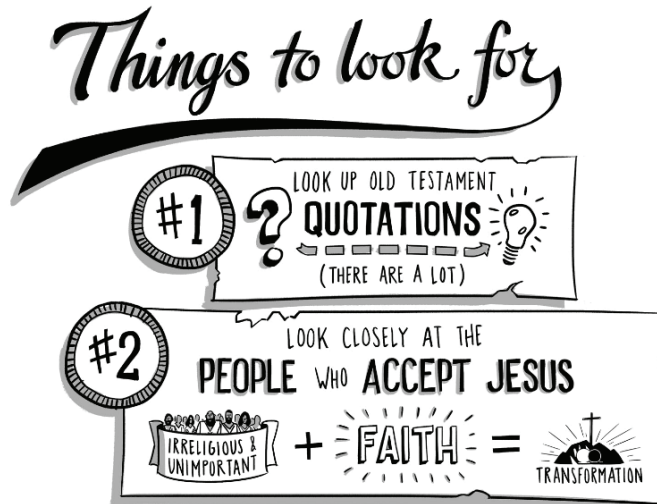 Things to look for
#1
LOOK UP OLD TESTAMENT
? QUOTATIONS
(THERE ARE A LOT)
#2
LOOK CLOSELY AT THE
PEOPLE WHO ACCEPT JESUS
IRRELIGIOUS &
UNIMPORTANT
+ FAITH =
TRANSFORMATION